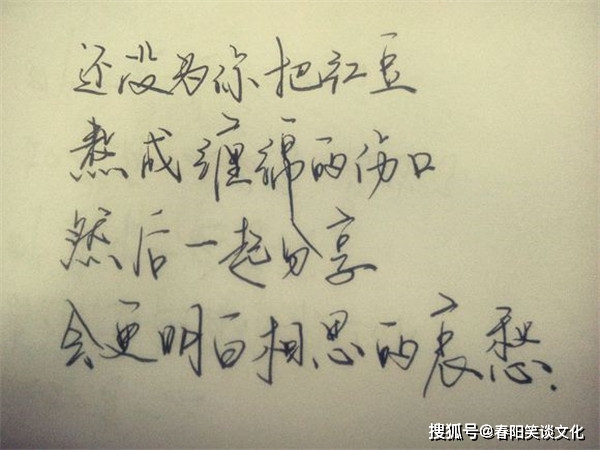 还没为你把红豆
熬成缠绵的伤口
然后一起分享
会更明白相思的哀愁.
搜狐号@春阳笑谈文化